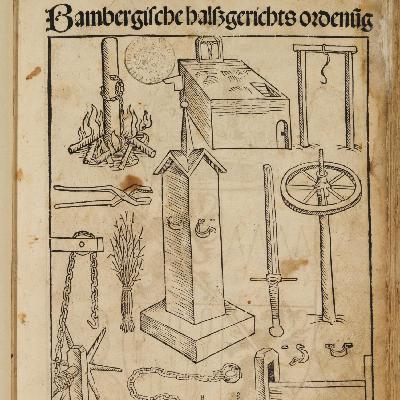 Bambergische halßgerichts ordenūg